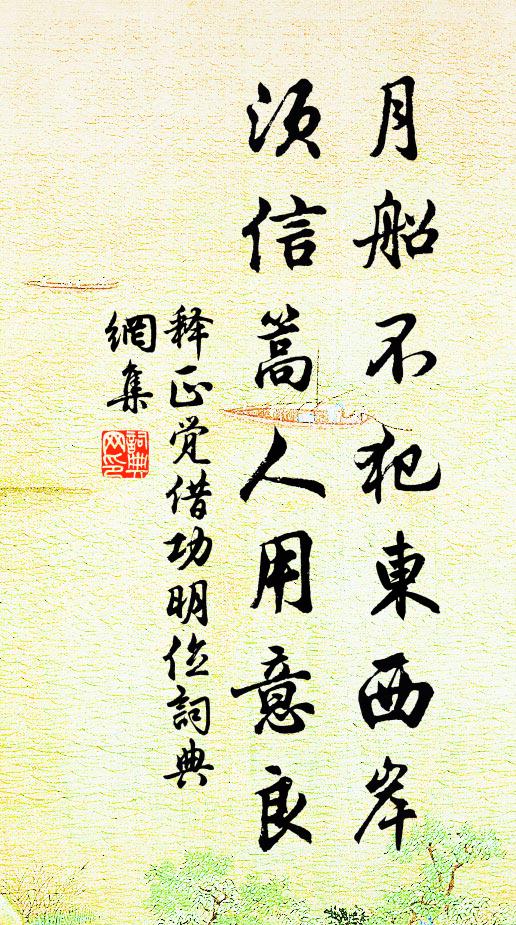 月船不犯東西岸
須信篙人用意良
释正觉借功明位詞典
網集
詞典
网印